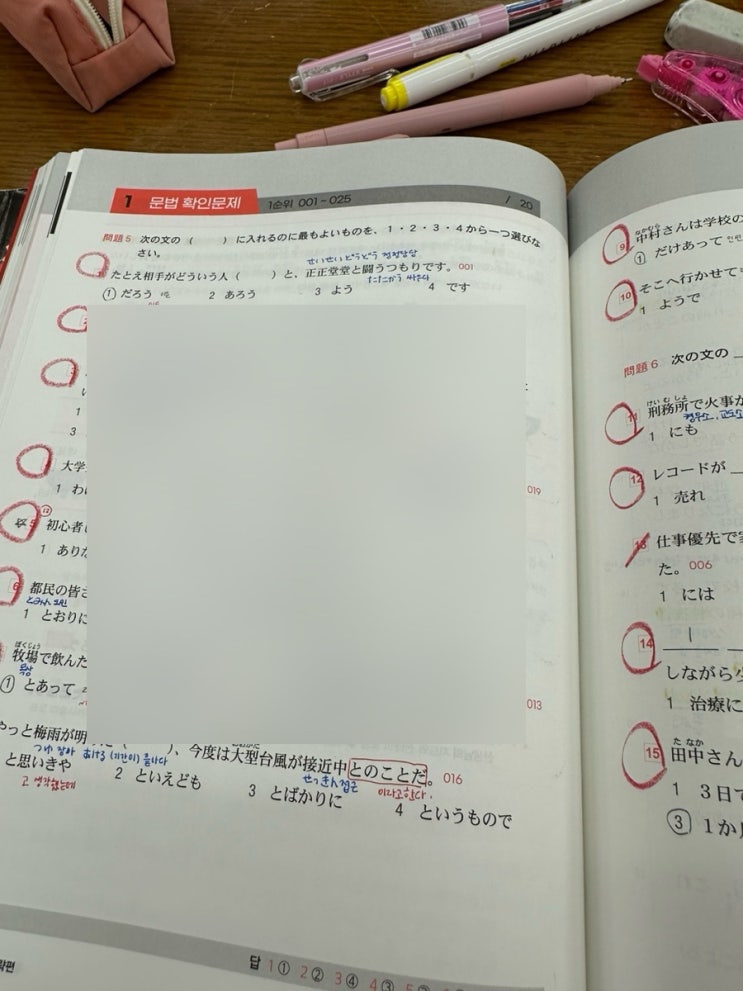 1 문법 확인문제 1순위 001~025 / 20
問題5 次の文の（ ）に入れるのに最もよいものを、1・2・3・4から一つ選びな
さい。
せいせいどうどう 정정당당
たとえ相手がどういう人（ ）と、正正堂堂と闘うつもりです。001
たたかう 싸우다
① だろう 2 あろう 3 よう 4 です
1
3
大学
1 わ
019
5 初心者
1 あり
6 都民の皆
1 とおりに
ぼくじょう
牧場で飲んた
목장
① とあって
013
やっと梅雨が明 、今度は大型台風が接近中とのことだ。016
つゆ 장마 あける (기간이) 끝나다 せっきん 접근 이라고 한다.
と思いきや 2 といえども 3 とばかりに 4 というもので
고 생각했는데
답 1① 2② 3④ 4③
なかむら
9 中村さんは学校の
① だけあって
10 そこへ行かせて
1 ようで
問題6 次の文の
けいむしょ
11 刑務所で火事が
형무소, 교도소
1 にも
12 レコードが
1 売れ
13 仕事優先で
た。006
1 には
14 1
しながら
1 治療に
たなか
15 田中さん
1 3日で
③ 1か